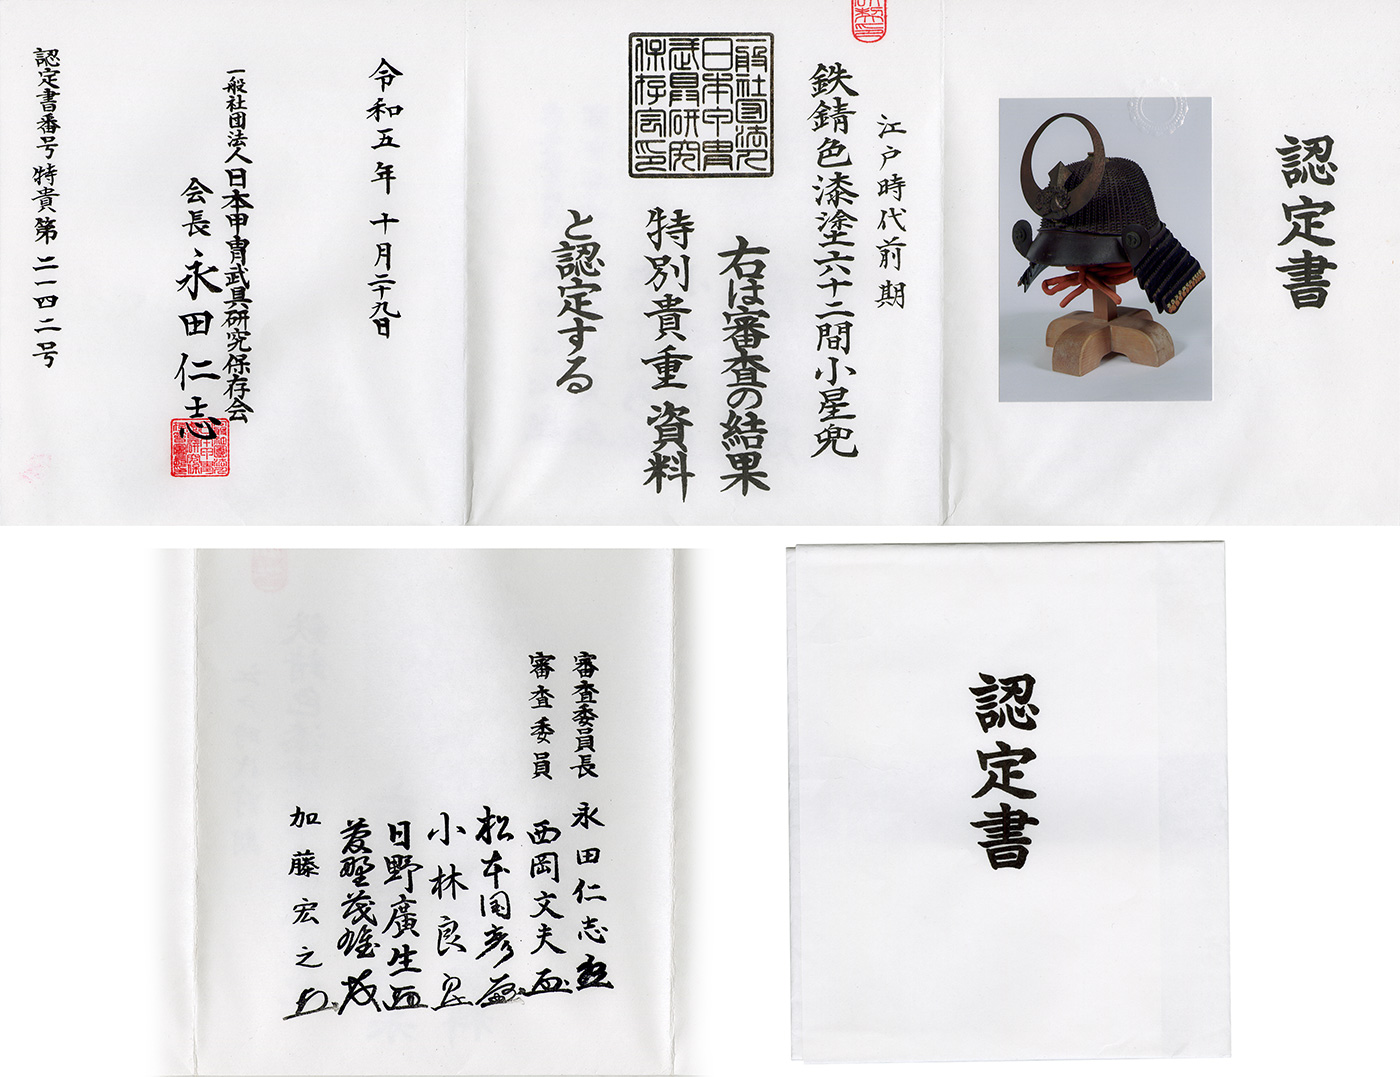 認定書
江戸時代前期
鉄錆色漆塗六十二間小星兜
右は審査の結果
特別貴重資料
と認定する
一般社団法人日本甲冑武具研究保存会印
令和五年十月二十九日
一般社団法人日本甲冑武具研究保存会
会長永田仁志
認定書番号特貴第二一四二号
審査委員長永田仁志
審査委員西岡文夫
松本国彦
小林良
日野廣生
菱野茂雄
加藤宏之
認定書